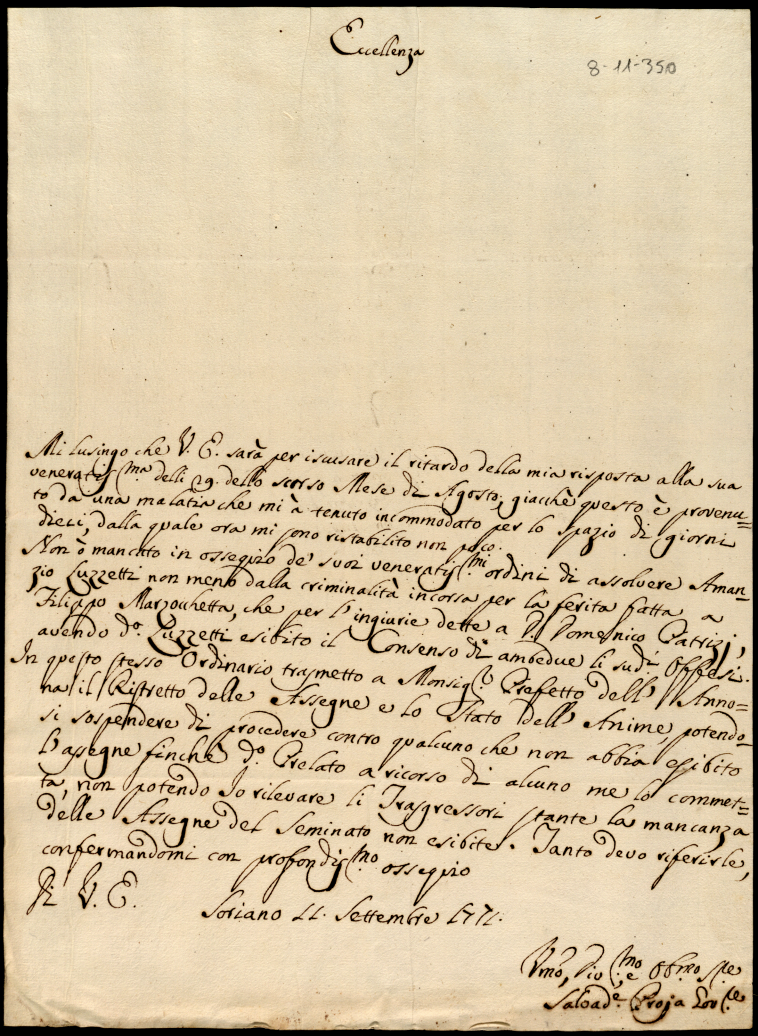 Eccellenza
8-11-350
Mi lusingo che V. E. sarà per iscusare il ritardo della mia risposta alla sua
veneratiss.ma delli 29. dello scorso Mese di Agosto, giacchè questo è provenu=
to da una malatia che mi à tenuto incommodato per lo spazio di giorni
dieci, dalla quale ora mi sono ristabilito non poco.
Non ò mancato in ossequio de' suoi veneratiss.mi ordini di assolvere Aman=
zio Luzzetti non meno dalla criminalità incorsa per la ferita fatta a
Filippo Marzochetta, che per l'ingiurie dette a D. Domenico Patrizj,
avendo d.o Luzzetti esibito il Consenso di ambedue li sud.i Offesi.
In questo stesso Ordinario trasmetto a Monsig.r Prefetto dell' Anno=
na il Ristretto delle Assegne e lo Stato dell' Anime, potendo=
si sospendere di procedere contro qualcuno che non abbia esibito
l'assegne finchè d.o Prelato a ricorso di alcuno me lo commet=
ta, non potendo Io rilevare li Trasgressori stante la mancanza
delle Assegne del Seminato non esibite. Tanto devo riferirle,
confermandomi con profondiss.mo ossequio
Di V. E.
Soriano 11. Settembre 1771.
Umo, Div.mo, e Obb.mo S.re
Salvad.e Proja Gov.re